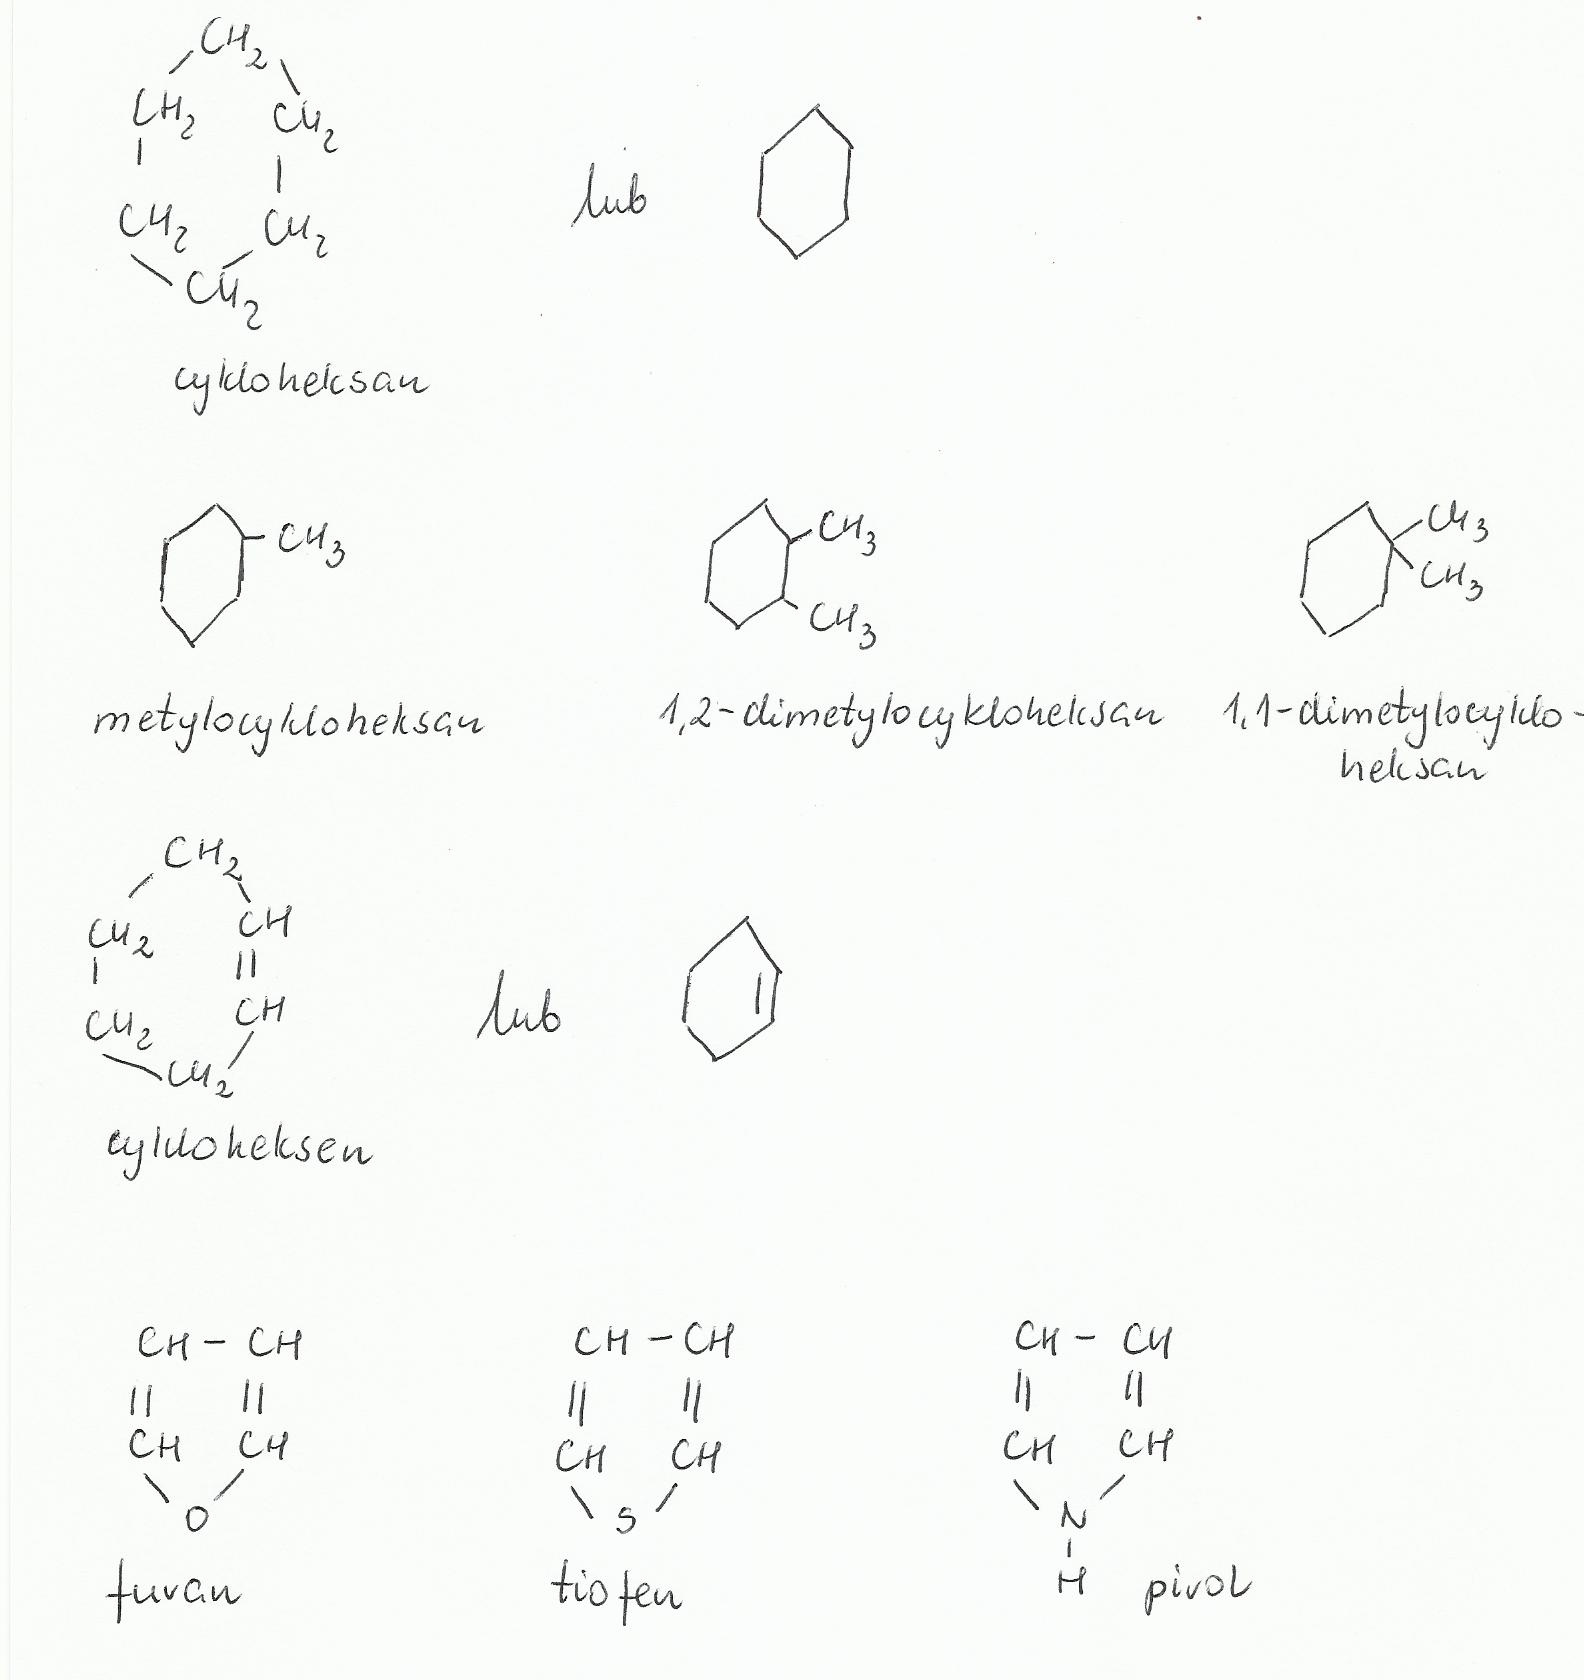 CH2
CH2 CH2
lub
CH2 CH2
CH2
cykloheksan
CH3
CH3
CH3
CH3
CH3
metylocykloheksan
1,2-dimetylocykloheksan
1,1-dimetylocyklo-
heksan
CH2
CH2 CH
lub
CH2 CH
CH2
cykloheksen
CH - CH
|| ||
CH CH
O
furan
CH - CH
|| ||
CH CH
S
tiofen
CH - CH
|| ||
CH CH
N
H
pirol